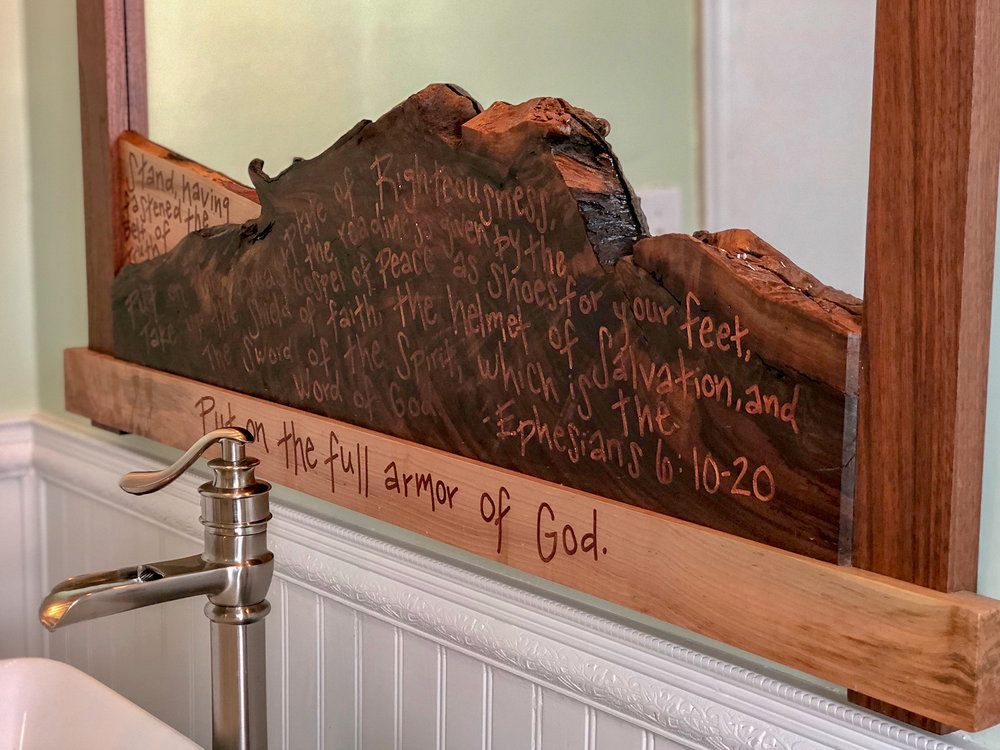 Stand, having
fastened the
Belt of
truth
Put on the Breastplate of Righteousness,
the readiness given by the
Gospel of Peace as Shoes for your feet,
Take up the Shield of faith, the helmet of Salvation, and
the Sword of the Spirit, which is the
Word of God.
-Ephesians 6:10-20
Put on the full armor of God.